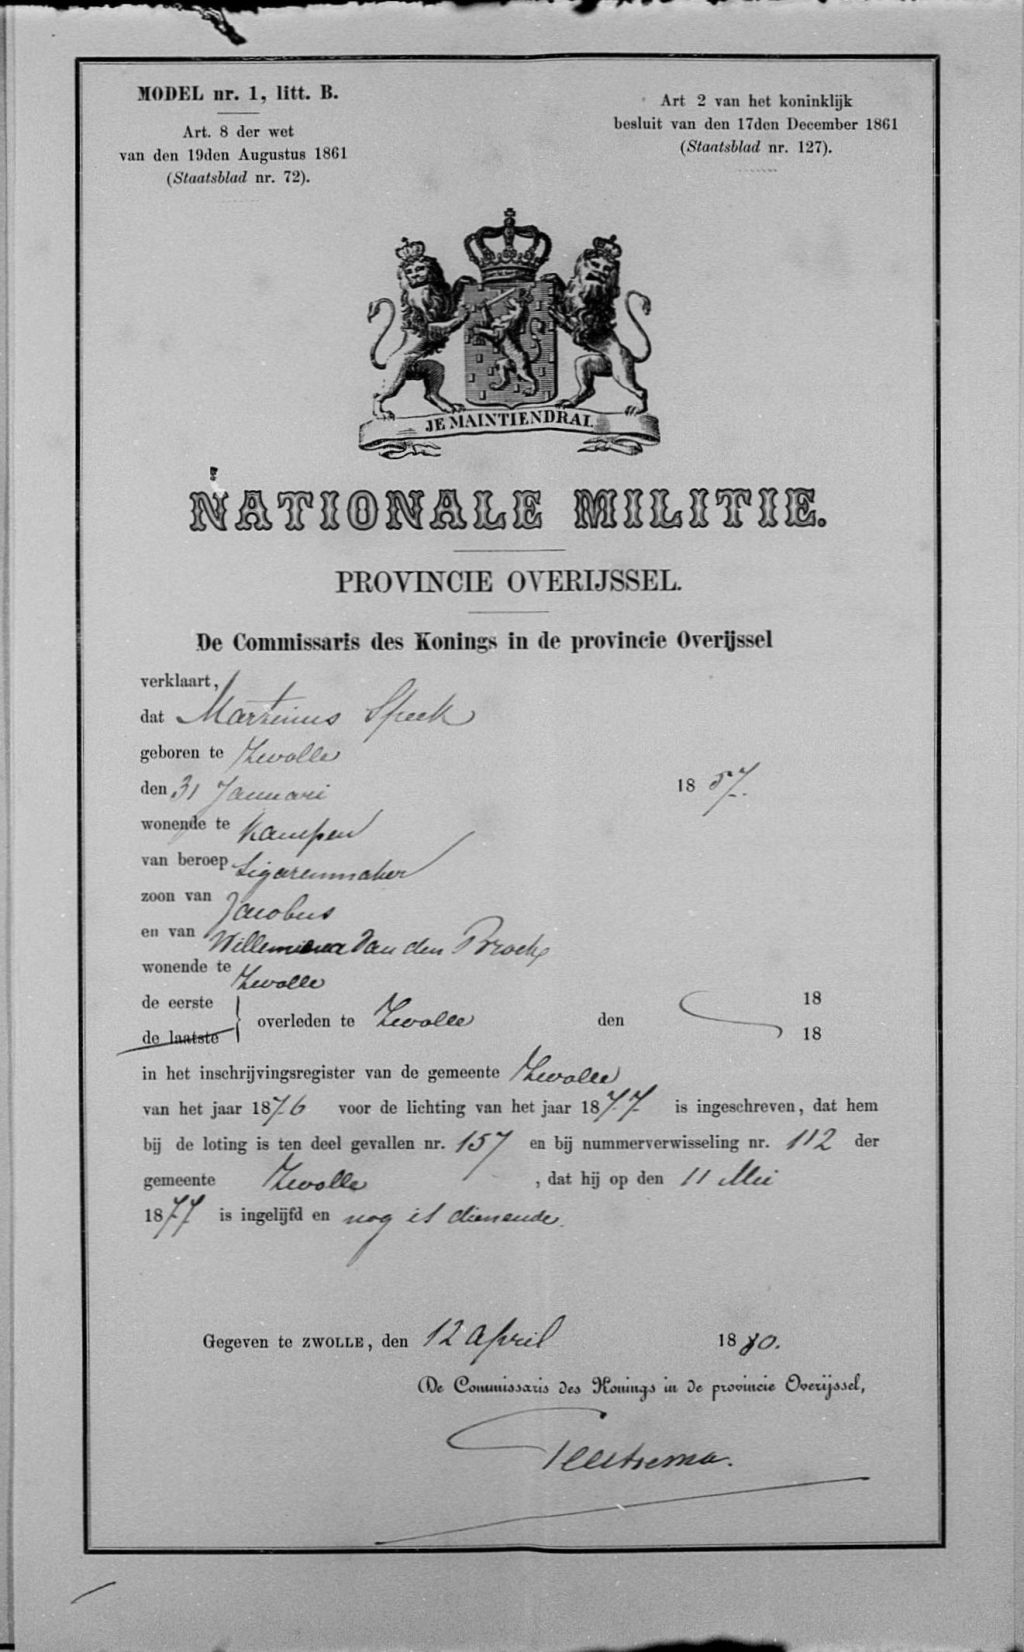 MODEL nr. 1, litt. B.
Art. 8 der wet
van den 19den Augustus 1861
(Staatsblad nr. 72).
Art 2 van het koninklijk
besluit van den 17den December 1861
(Staatsblad nr. 127).
JE MAINTIENDRAI.
NATIONALE MILITIE.
PROVINCIE OVERIJSSEL.
De Commissaris des Konings in de provincie Overijssel
verklaart,
dat Martinus Speek
geboren te Zwolle
den 31 Januari 1857.
wonende te Kampen
van beroep Sigarenmaker
zoon van Jacobus
en van Willemina van den Broek
wonende te Zwolle
de eerste 18
de laatste overleden te Zwolle den 18
in het inschrijvingsregister van de gemeente Zwolle
van het jaar 1876 voor de lichting van het jaar 1877 is ingeschreven, dat hem
bij de loting is ten deel gevallen nr. 157 en bij nummerverwisseling nr. 112 der
gemeente Zwolle, dat hij op den 11 Mei
1877 is ingelijfd en nog is dienende.
Gegeven te ZWOLLE, den 12 April 1880.
De Commissaris des Konings in de provincie Overijssel,